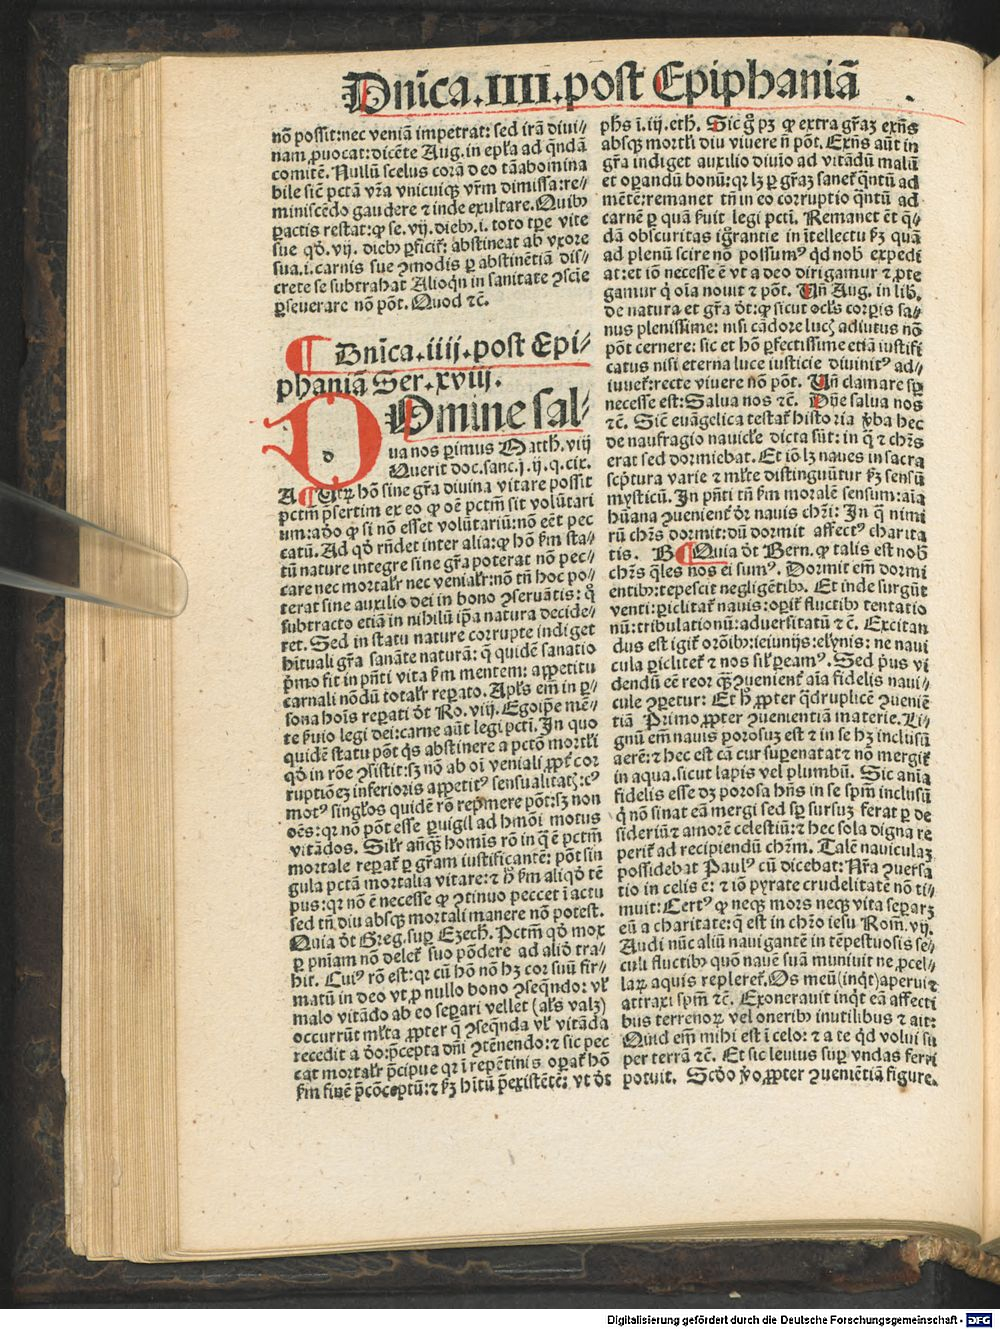 Dnica.IIII.post Epiphaniā
nō possit:nec veniā impetrat: sed irā diui⸗
nam ꝓuocat:dicēte Aug. in epl'a ad qndā
comitē. Nullū scelus corā deo tā abomina
bile sic̄ pctā vr̄a vnicuiqʒ vr̄m dimissa:re⸗
miniscēdo gaudere ⁊ inde exultare. Quibꝰ
ꝑactis restat:ꝙ se. vij. diebꝰ .i. toto tꝑe vite
sue qđ. vij. diebꝰ ꝑficit᷑: abstineat ab vxore
sua.i.carnis sue ꝯmodis ꝑ abstinētiā dis⸗
crete se subtrahat Alioqn in sanitate ꝯscīe
ꝑseuerare nō pōt. Quod ⁊c̄.
Dnīca.iiij.post Epi⸗
phaniā Ser.xviij.
Domine sal⸗
ua nos ꝑimus Matth. viij
Querit doc.sanc.j.ij.q.cix.
A Vtrū hō sine gr̄a diuina vitare possit
pctm̄ p̄sertim ex eo ꝙ oē pctm̄ sit volūtari
um:adeo ꝙ si nō esset volūtariū:nō eēt pec
catū. Ad qđ rn̄det inter alia:ꝙ hō fm̄ sta⸗
tū nature integre sine gr̄a poterat nō pec⸗
care nec mortalit᷑ nec venialit᷑:nō tn̄ hoc po⸗
terat sine auxilio dei in bono ꝯseruātis: qͦ
subtracto etiā in nihilū ip̄a natura decide⸗
ret. Sed in statu nature corrupte indiget
hītuali gr̄a sanāte naturā: q̄ quidē sanatio
p̄mo fit in pn̄ti vita fm̄ mentem: appetitu
carnali nōdū totalit᷑ reꝑato. Apl's em̄ in ꝑ⸗
sona hoīs reꝑati dt̄ Ro. vij. Egoip̄e mē⸗
te ẜuio legi dei:carne aūt legi pcti. In quo
quidē statu pōt qs abstinere a pctō mortl'i
qđ in rōe ꝯsistit:sʒ nō ab oī veniali ꝓpt᷑ cor
ruptiōeʒ inferioris appetitꝰ sensualitatꝭ:cꝰ
motꝰ singl'os quidē rō rep̄mere pōt:sʒ non
oēs:qr nō pōt esse ꝑuigil ad hmōi motus
vitādos. Silr anqʒ homīs rō in q̄ ē pctm̄
mortale reꝑat᷑ ꝑ gr̄am iustificantē: pōt sin
gula pctā mortalia vitare:⁊ h̄ fm̄ aliqđ tē
pus:qr nō ē necesse ꝙ ꝯtinuo peccet ī actu
sed tn̄ diu absqʒ mortali manere nō potest.
Quia dt̄ Greg. suꝑ Ezech. Pctm̄ qđ mox
ꝑ pn̄iam nō delet᷑ suo pōdere ad aliđ tra⸗
hit. Cuiꝰ rō est:qr cū hō nō hʒ cor suū fir⸗
matū in deo vt ꝓ nullo bono ꝯseqndo: vl'
malo vitādo ab eo seꝑari vellet (al's valʒ)
occurrūt ml'ta ꝓpter q̄ ꝯseqnda vl' vitāda
recedit a đo:p̄cepta dn̄i ꝯtēnendo:⁊ sic pec
cat mortalit᷑ p̄cipue qr ī repētinis oꝑat᷑ hō
fm̄ finē p̄cōceptū:⁊ fm̄ hītū p̄existētē: vt dt̄
ph̄s ī.iij.eth. Sic gͦ pʒ ꝙ extra gr̄aʒ exn̄s
absqʒ mortl'i diu viuere n̄ pōt. Exn̄s aūt in
gr̄a indiget auxilio diuīo ad vitādū malū
et oꝑandū bonū:qr lʒ ꝑ gr̄aʒ sanet᷑ qntū ad
mētē:remanet tn̄ in eo corruptio qntū ad
carnē ꝑ quā ẜuit legi pcti. Remanet ēt q⸗
dā obscuritas ignorantie in intellectu fm̄ quā
ad plenū scire nō possumꝰ qđ nob̄ expedi
at:et iō necesse ē vt a deo dirigamur ⁊ ꝓte
gamur q oīa nouit ⁊ pōt. Vn̄ Aug. in lib.
de natura et gr̄a dt̄:ꝙ sicut ocl's corꝑis sa⸗
nus plenissime: nisi cādore lucꝭ adiutus nō
pōt cernere: sic et hō ꝑfectissime etiā iustifi
catus nisi eterna luce iusticie diuinitꝰ ad⸗
iuuet᷑:recte viuere nō pōt. Vn̄ clamare sꝑ
necesse est:Salua nos ⁊c̄. Dn̄e salua nos
⁊c̄. Sicut euāgelica testat᷑ historia ꝟba hec
de naufragio nauicle dicta sūt: in q̄ ⁊ chr̄s
erat sed dormiebat. Et iō lʒ naues in sacra
scptura varie ⁊ ml'te distinguūtur fm̄ sensū
mysticū. In pn̄ti tn̄ fm̄ moralē sensum:aīa
hūana ꝯuenient᷑ dr̄ nauis chr̄i: In q̄ nimi
rū chr̄s dormit:dū dormit affectꝰ charita
tis. B Quia dt̄ Bern. ꝙ talis est nob̄
chr̄s qles nos ei sumꝰ. Dormit em̄ dormi
entibꝰ:tepescit negligētibꝰ. Et inde surgūt
venti:ꝑiclitat᷑ nauis:oꝑit᷑ fluctibꝰ tentatio
nū:tribulationū:aduersitatū ⁊ c̄. Excitan
dus est igit᷑ orōibꝰ:ieiunijs:elynis: ne naui
cula ꝑiclitet᷑ ⁊ nos sil' ꝑeamꝰ. Sed pꝰus vi
dendū eē reor qʒ ꝯuenient᷑ aīa fidelis naui⸗
cule ꝯꝑetur: Et h̄ ꝓpter qdruplicē ꝯueniē
tiā Primo ꝓpter ꝯuenientiā materie. Li⸗
gnū em̄ nauis porosuʒ est ⁊ in se hʒ inclusū
aerē:⁊ hec est cā cur suꝑenatat ⁊ nō mergit᷑
in aqua.sicut lapis vel plumbū. Sic anīa
fidelis esse dʒ porosa hn̄s in se spm̄ inclusū
q nō sinat eā mergi sed sꝑ sursuʒ ferat ꝑ de
sideriū ⁊ amorē celestiū:⁊ hec sola digna re
perit᷑ ad recipiendū chr̄m. Talē nauiculaʒ
possidebat Paulꝰ cū dicebat: Nr̄a ꝯuersa
tio in celis ē: ⁊ iō pyrate crudelitatē nō ti⸗
muit: Certꝰ ꝙ neqʒ mors neqʒ vita seꝑarʒ
eū a charitate:q̄ est in chr̄o iesu Rom. vij.
Audi nūc aliū nauigantē in tēpestuosis se⸗
culi fluctibꝰ quō nauē suā muniuit ne ꝓcel⸗
laꝝ aquis repleret᷑. Os meū(inqt)aperui ⁊
attraxi spm̄ ⁊c̄. Exonerauit inqt eā affecti
bus terrenoꝝ vel oneribꝰ inutilibus ⁊ ait:
Quid em̄ mihi est ī celo: ⁊ a te qđ volui su
per terrā ⁊c̄. Et sic leuius suꝑ vndas ferri
potuit. Scđo ꝟo ꝓpter ꝯueniētiā figure.
Digitalisierung gefördert durch die Deutsche Forschungsgemeinschaft - DFG